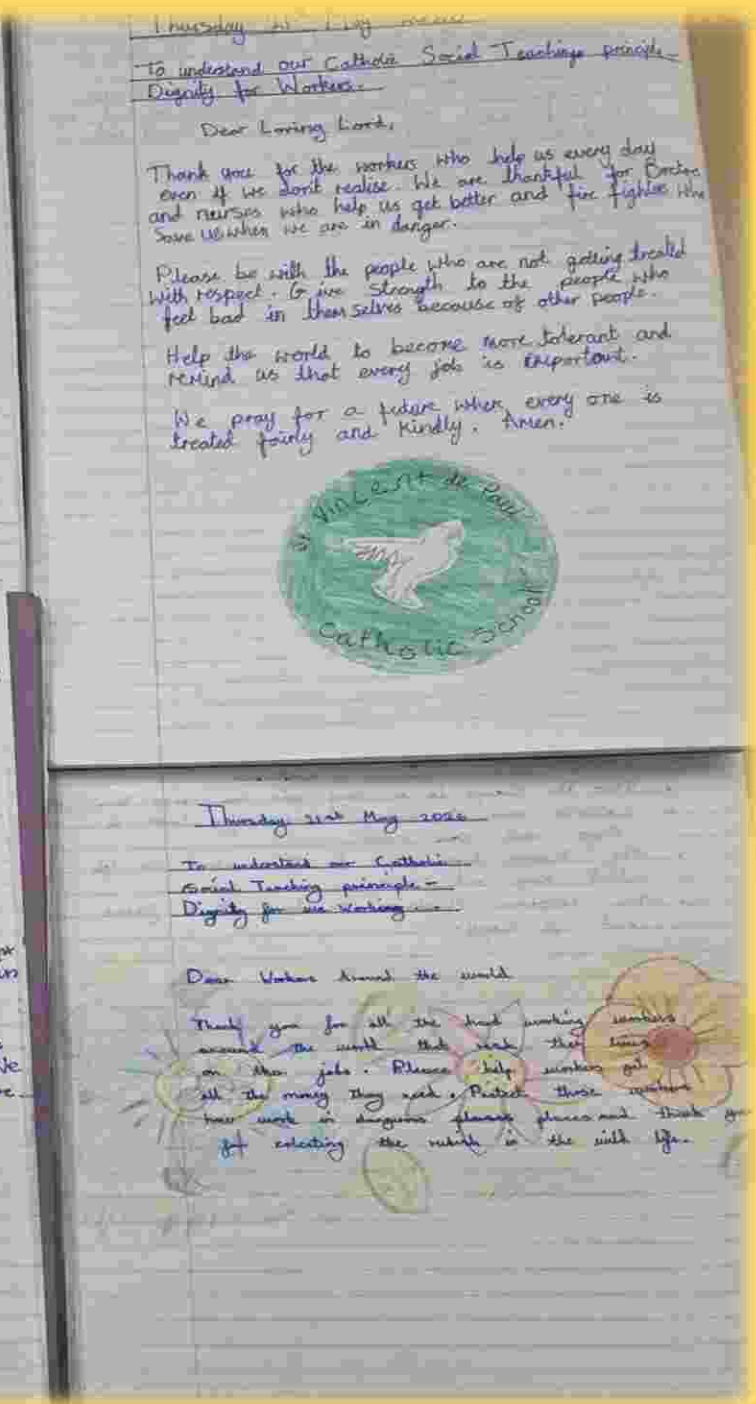 Thursday 21st May
To understand our Catholic Social Teachings principle -
Dignity for Workers.
Dear Loving Lord,
Thank you for the workers who help us every day
even if we don't realise. We are thankful for Doctors
and nurses who help us get better and fire fighters who
save us when we are in danger.
Please be with the people who are not getting treated
with respect. Give strength to the people who
feel bad in themselves because of other people.
Help the world to become more tolerant and
remind us that every job is important.
We pray for a future when every one is
treated fairly and kindly. Amen.
St Vincent de Paul
Catholic School
Thursday 21st May 2026
To understand our Catholic
Social Teaching principle -
Dignity for working
Dear Workers Around the world
Thank you for all the hard working workers
around the world that risk their lives
on their jobs. Please help workers get
all the money they need. Protect those workers
how work in dangrous places and thank you
for colecting the rubish in the wild life.